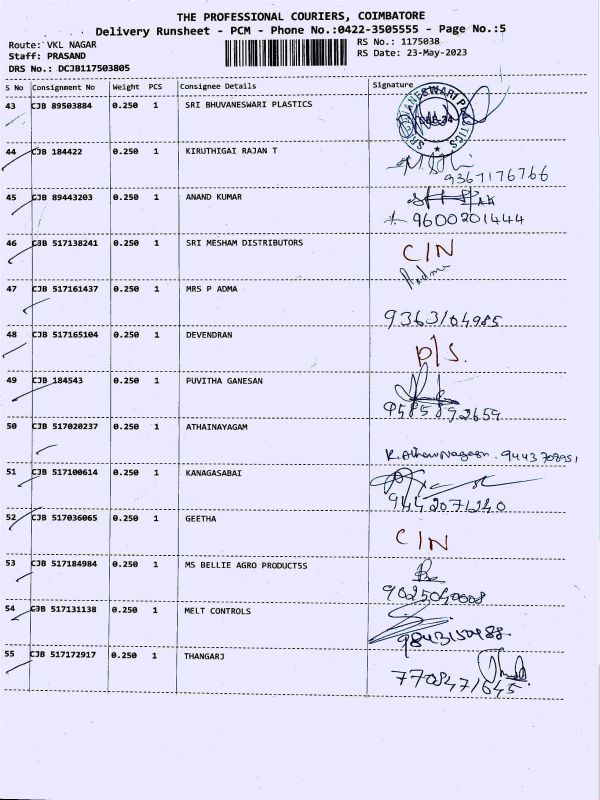 THE PROFESSIONAL COURIERS, COIMBATORE
Delivery Runsheet - PCM - Phone No.:0422-3505555 - Page No.:5
Route: VKL NAGAR
RS No.: 1175038
Staff: PRASAND
RS Date: 23-May-2023
DRS No.: DCJB117503805
S No Consignment No Weight PCS Consignee Details Signature
43 CJB 89503884 0.250 1 SRI BHUVANESWARI PLASTICS
44 CJB 184422 0.250 1 KIRUTHIGAI RAJAN T
9367176766
45 CJB 89443203 0.250 1 ANAND KUMAR
9600201444
46 CJB 517138241 0.250 1 SRI MESHAM DISTRIBUTORS C/N
47 CJB 517161437 0.250 1 MRS P ADMA Padma
9363104985
48 CJB 517165104 0.250 1 DEVENDRAN D/S.
49 CJB 184543 0.250 1 PUVITHA GANESAN
9585892659
50 CJB 517020237 0.250 1 ATHAINAYAGAM
51 CJB 517100614 0.250 1 KANAGASABAI
9442071240
52 CJB 517036065 0.250 1 GEETHA C/N
53 CJB 517184984 0.250 1 MS BELLIE AGRO PRODUCT5S
9025040008
54 CJB 517131138 0.250 1 MELT CONTROLS
9843150488
55 CJB 517172917 0.250 1 THANGARJ
7708471645